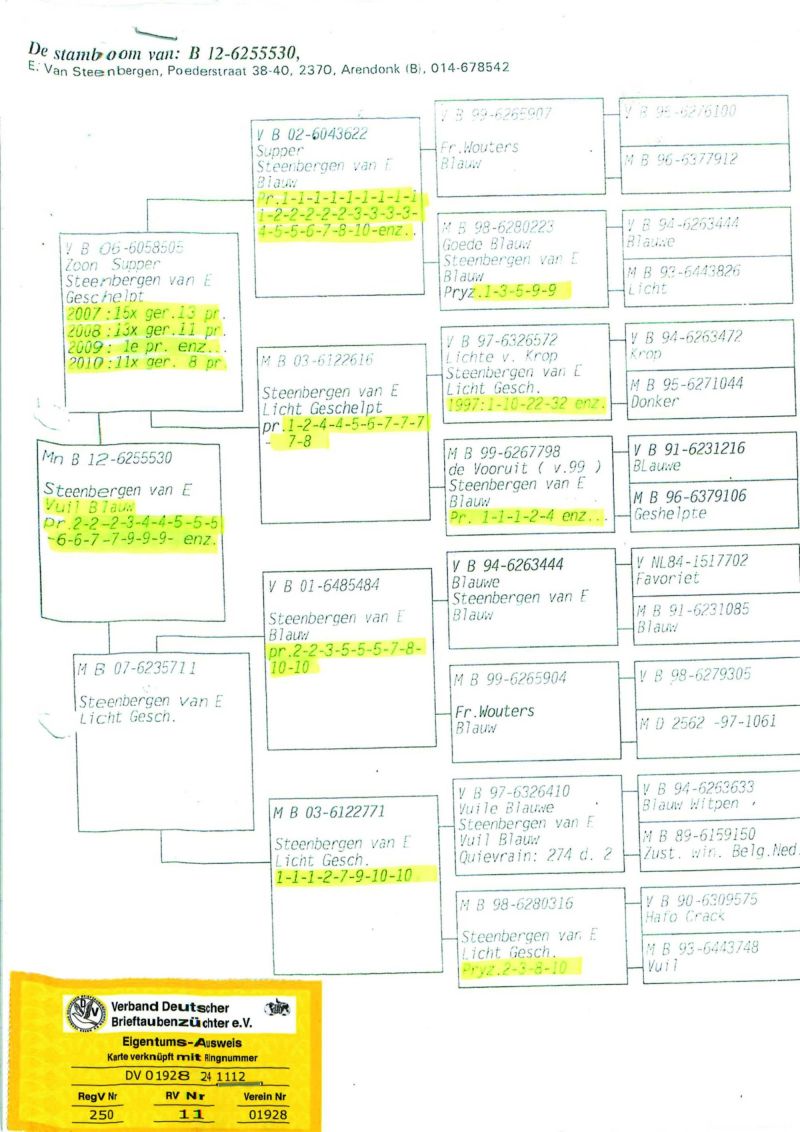 De stamboom van: B 12-6255530,
E. Van Steenbergen, Poederstraat 38-40, 2370, Arendonk (B), 014-678542
Mn B 12-6255530
Steenbergen van E
Vuil Blauw
pr.2-2-2-3-4-4-5-5-5
-6-6-7-7-9-9-9- enz.
V B 06-6058505
Zoon Supper
Steenbergen van E
Geschelpt
2007:15x ger.13 pr.
2008:13x ger.11 pr.
2009: 1e pr. enz...
2010:11x ger. 8 pr.
M B 07-6235711
Steenbergen van E
Licht Gesch.
V B 02-6043622
Supper
Steenbergen van E
Blauw
Pr.1-1-1-1-1-1-1-1-1
1-2-2-2-2-2-3-3-3-3-
4-5-5-6-7-8-10-enz..
M B 03-6122616
Steenbergen van E
Licht Geschelpt
pr.1-2-4-4-5-6-7-7-7
- 7-8
V B 01-6485484
Steenbergen van E
Blauw
pr.2-2-3-5-5-5-7-8-
10-10
M B 03-6122771
Steenbergen van E
Licht Gesch.
1-1-1-2-7-9-10-10
V B 99-6265907
Fr.Wouters
Blauw
M B 98-6280223
Goede Blauw
Steenbergen van E
Blauw
Pryz.1-3-5-9-9
V B 97-6326572
Lichte v. Krop
Steenbergen van E
Licht Gesch.
1997:1-10-22-32 enz.
M B 99-6267798
de Vooruit ( v.99 )
Steenbergen van E
Blauw
Pr. 1-1-1-2-4 enz...
V B 94-6263444
Blauwe
Steenbergen van E
Blauw
M B 99-6265904
Fr.Wouters
Blauw
V B 97-6326410
Vuile Blauwe
Steenbergen van E
Vuil Blauw
Quievrain: 274 d. 2
M B 98-6280316
Steenbergen van E
Licht Gesch.
Pryz.2-3-8-10
V B 95-6276100
M B 96-6377912
V B 94-6263444
Blauwe
M B 93-6443826
Licht
V B 94-6263472
Krop
M B 95-6271044
Donker
V B 91-6231216
BLauwe
M B 96-6379106
Geshelpte
V NL84-1517702
Favoriet
M B 91-6231085
Blauw
V B 98-6279305
M D 2562 -97-1061
V B 94-6263633
Blauw Witpen
M B 89-6159150
Zust. win. Belg.Ned.
V B 90-6309575
Hafo Crack
M B 93-6443748
Vuil
Verband Deutscher
Brieftaubenzüchter e.V.
Eigentums-Ausweis
Karte verknüpft mit Ringnummer
DV 01928 24 1112
RegV Nr RV Nr Verein Nr
250 11 01928